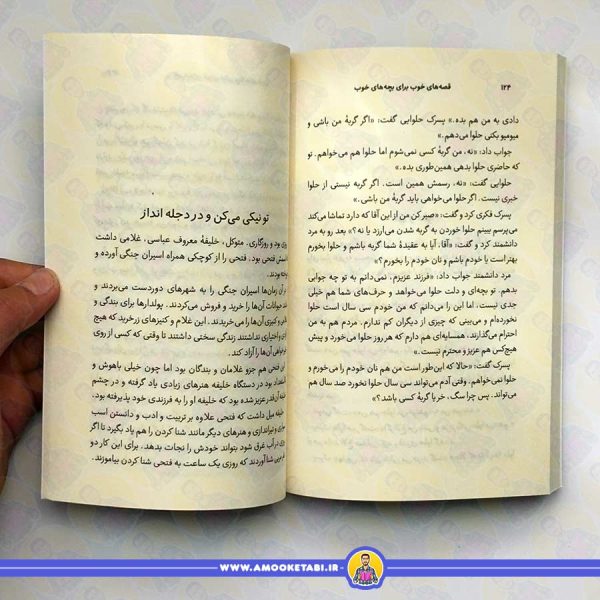 ۱۲۴
قصه‌های خوب برای بچه‌های خوب
دادی به من هم بده.» پسرک حلوایی گفت: «اگر گربهٔ من باشی و
میومیو بکنی حلوا می‌دهم.»
جواب داد: «نه، من گربهٔ کسی نمی‌شوم اما حلوا هم می‌خواهم. تو
که حاضری حلوا بدهی همین‌طوری بده.»
حلوایی گفت: «نه، رسمش همین است. اگر گربه نیستی از حلوا
خبری نیست. اگر حلوا می‌خواهی باید گربهٔ من باشی.»
پسرک فکری کرد و گفت: «صبر کن من از این آقا که دارد تماشا می‌کند
می‌پرسم ببینم حلوا خوردن به گربه شدن می‌ارزد یا نه؟» بعد رو به مرد
دانشمند کرد و گفت: «آقا، آیا به عقیدهٔ شما گربه باشم و حلوا بخورم
بهتر است یا خودم باشم و نان خودم را بخورم؟»
مرد دانشمند جواب داد: «فرزند عزیزم، نمی‌دانم به تو چه جوابی
بدهم. تو بچه‌ای و دلت حلوا می‌خواهد و حرف‌های من شاید هم خیلی
جدی نیست، اما این را می‌دانم که من خودم سی سال است حلوا
نخورده‌ام و می‌بینی که چیزی از دیگران کم ندارم. مردم هم به من
احترام می‌گذارند. همسایه‌ای هم دارم که هر روز حلوا می‌خورد و پیش
هیچ‌کس هم عزیز و محترم نیست.»
پسرک گفت: «حالا که این‌طور است من هم نان خودم را می‌خورم و
حلوا نمی‌خواهم. وقتی آدم می‌تواند سی سال حلوا نخورد صد سال هم
می‌تواند. پس چرا سگ، خر یا گربهٔ کسی باشد؟»
تو نیکی می‌کن و در دجله انداز
بود و روزگاری، متوکل، خلیفهٔ معروف عباسی، غلامی داشت
اسمش فتحی بود. فتحی را از کوچکی همراه اسیران جنگی آورده و
بودند.
آن زمان‌ها اسیران جنگی را به شهرهای دوردست می‌بردند و
حیوانات آن‌ها را خرید و فروش می‌کردند. پولدارها برای بندگی و
و کنیزی آن‌ها را می‌خریدند. این غلام و کنیزهای زرخرید که هیچ
و اختیاری نداشتند زندگی سختی داشتند تا وقتی که کسی از روی
آن‌ها را آزاد کند.
این فتحی هم جزو غلامان و بندگان بود اما چون خیلی باهوش و
بود در دستگاه خلیفه هنرهای زیادی یاد گرفته و در چشم
آن‌قدر عزیز شده بود که خلیفه او را به فرزندی خود پذیرفته بود.
خلیفه میل داشت که فتحی علاوه بر تربیت و ادب و دانستن اسب
و تیراندازی و هنرهای دیگر مانند شنا کردن را هم یاد بگیرد تا اگر
در آب غرق شود بتواند خودش را نجات بدهد. برای این کار دو
شنا آوردند که روزی یک ساعت به فتحی شنا کردن بیاموزند.
WWW.AMOOKETABI.IR